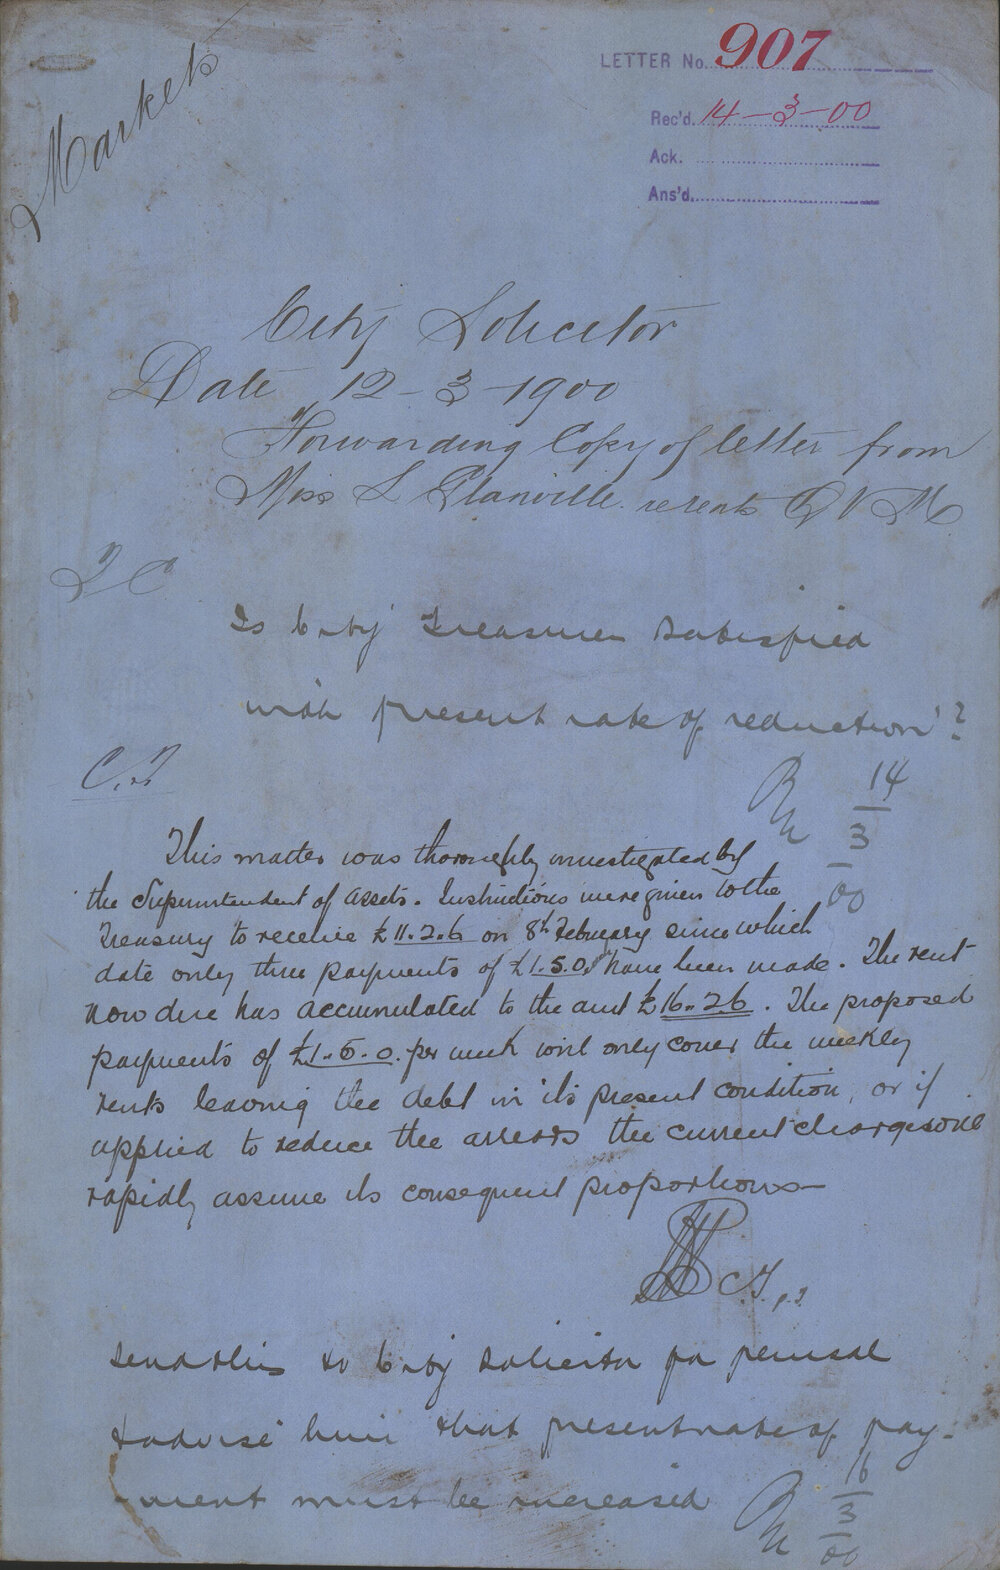 Markets
LETTER No. 907
Rec'd. 14-3-00
Ack.
Ans'd.
City Solicitor
Date 12-3-1900
Forwarding Copy of letter from
Miss L Glanville re rents Q V M
Is City Treasurer satisfied
with present rate of reduction?
14
3
00
This matter was thoroughly investigated by
the Superintendent of Assets. Instructions were given to the
Treasury to receive £11.2.6 on 8th February since which
date only three payments of £1.5.0 have been made. The rent
now due has accumulated to the amt £16.2.6. The proposed
payments of £1.5.0. per week will only cover the weekly
rents leaving the debt in its present condition, or if
applied to reduce the arrears the current charges will
rapidly assume its consequent proportions
C.T.
send this to City Solicitor for perusal
& advise him that present rate of pay-
-ment must be increased
16
3
00